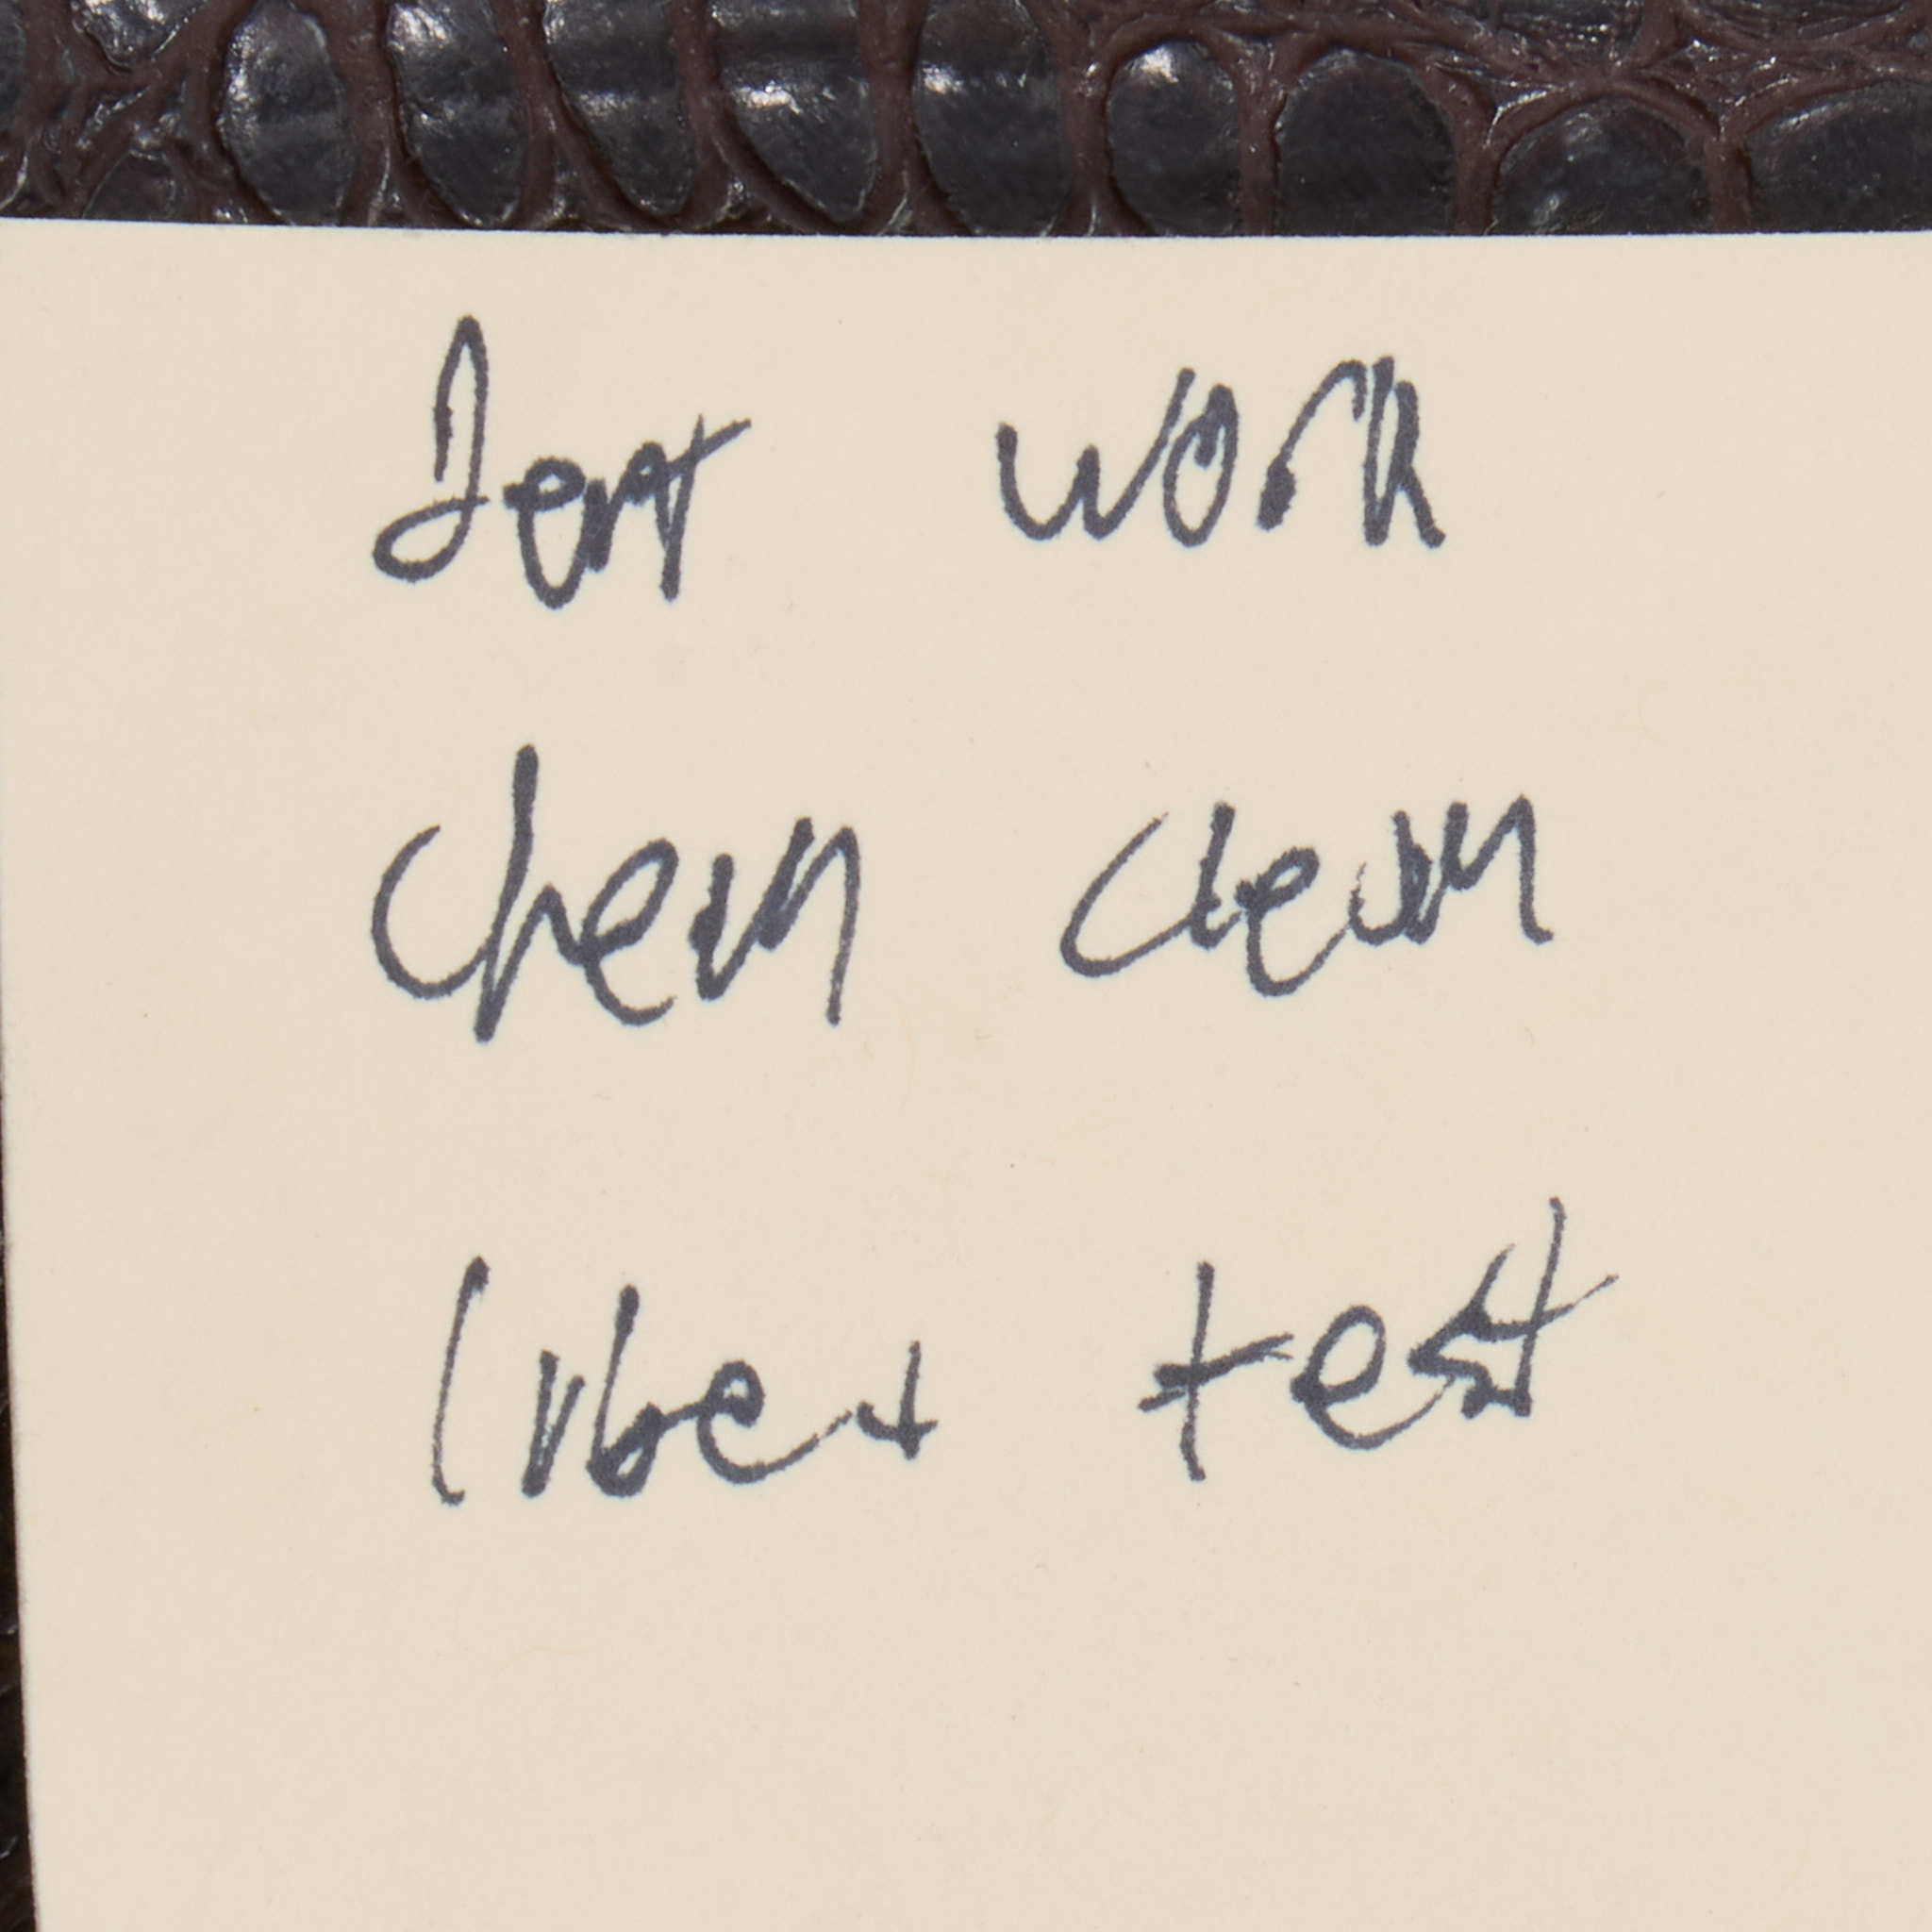 Dent work
Chem clean
Lubet test